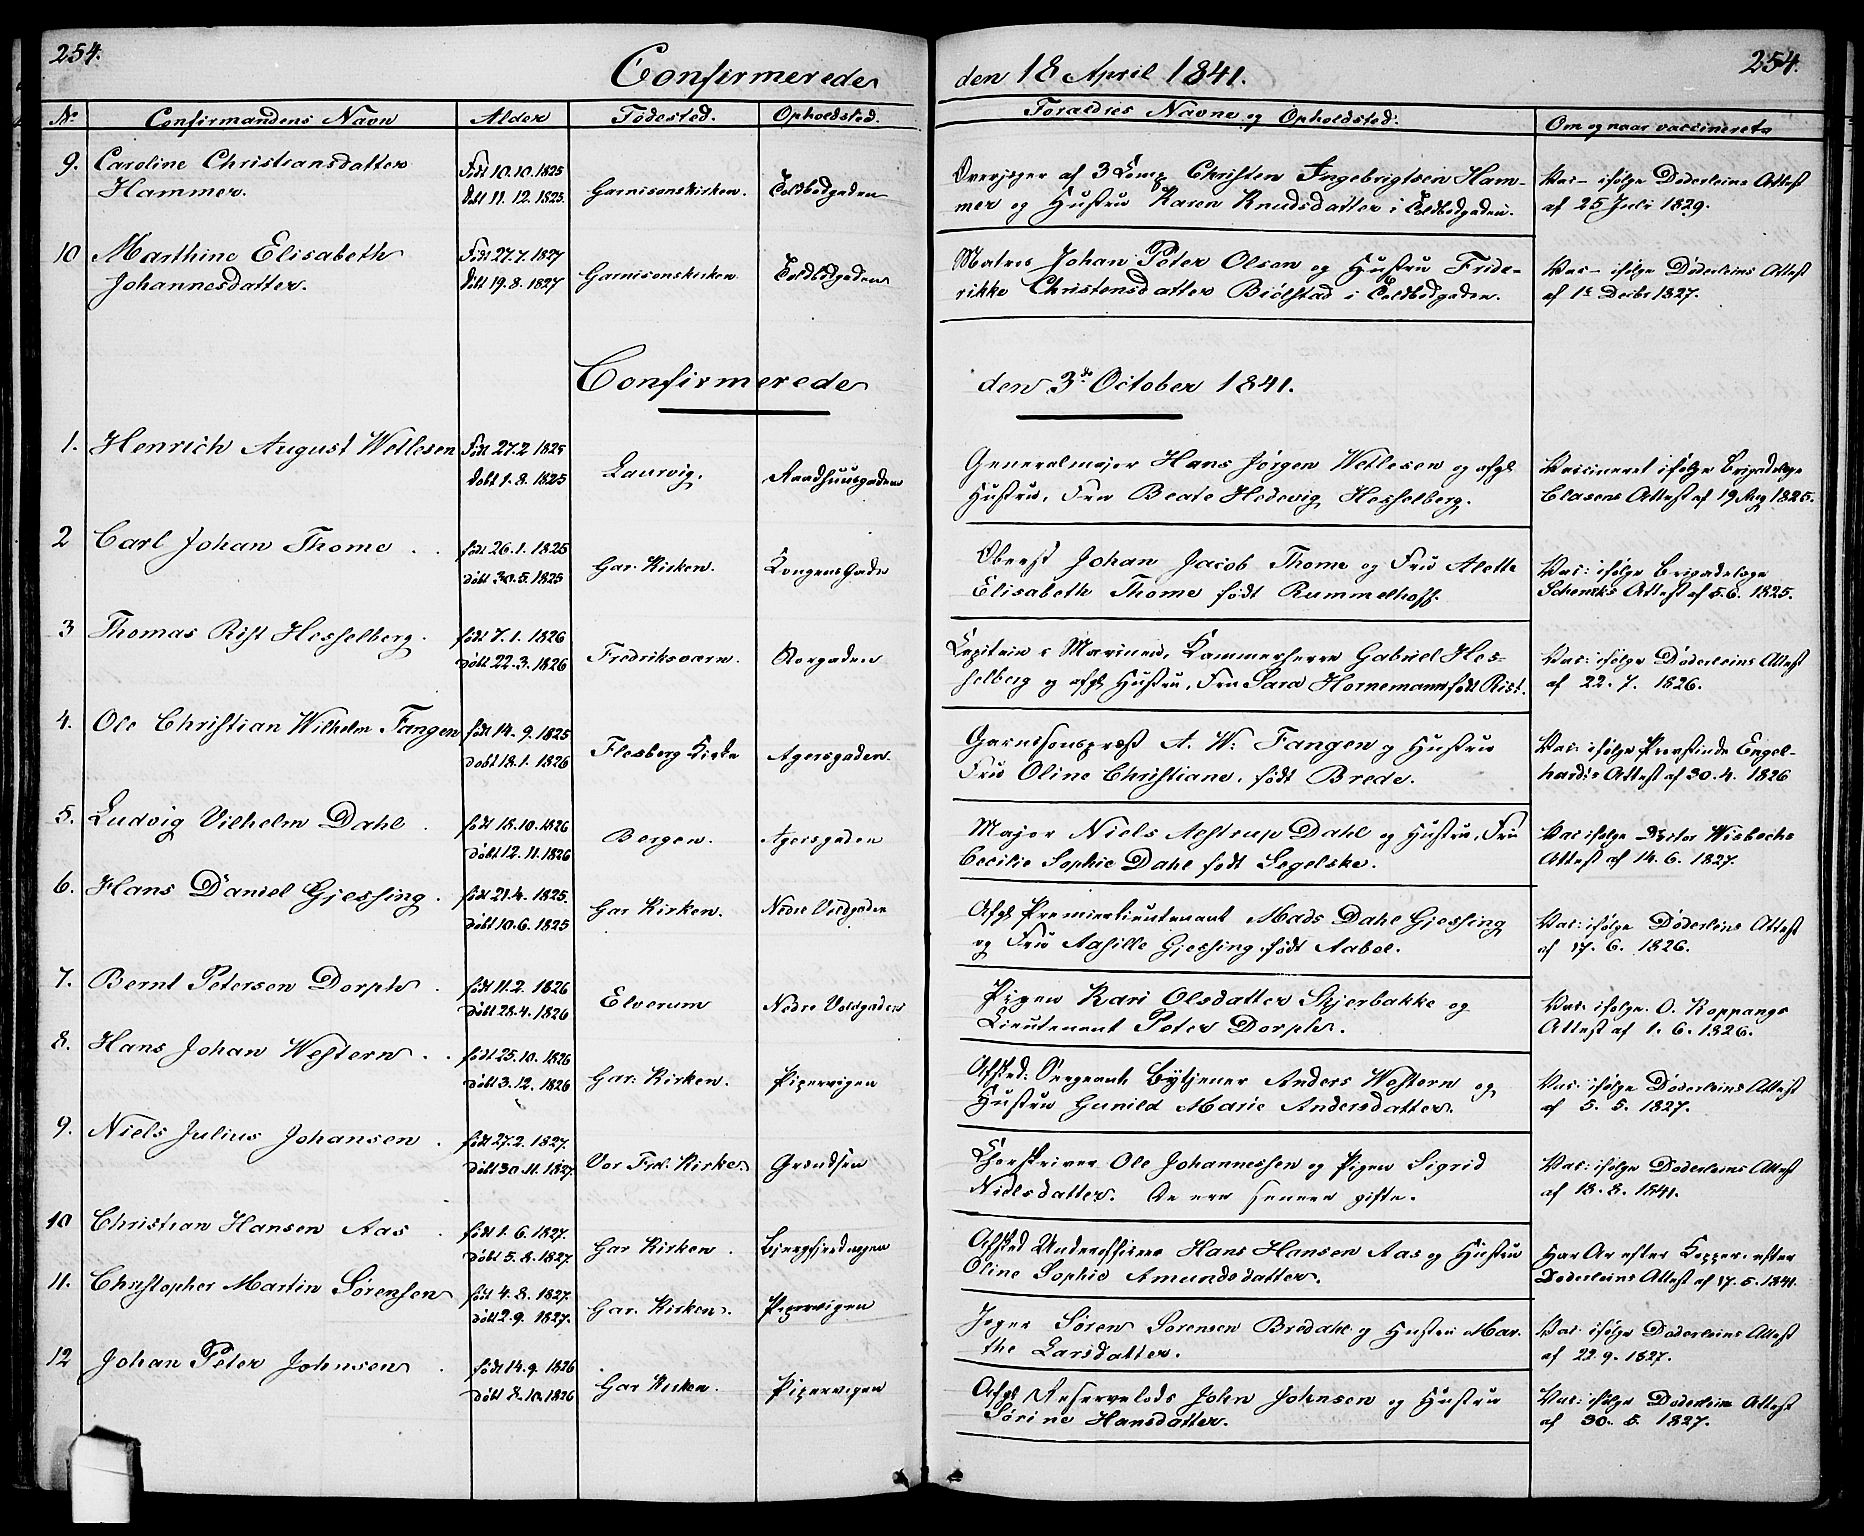 254.
Confirmerede den 18 April 1841.
254.
No Confirmandens Navn Alder Fødested. Opholdsted. Forældres Navne og Opholdsted. Om og naar vaccineret
9. Caroline Christiansdatter Født 10.10.1825 Overjæger af 3 Comp Christen Ingebrigtsen Ham- Vac- ifølge Døderleins Attest
Hammer. døbt 11.12.1825. Garnisonskirken. Toldbodgaden mer og Hustru Karen Knudsdatter i Toldbodgaden. af 25 Juli 1829.
10 Marthine Elisabeth Født 27.7.1827 Johan Peter Olsen og Hustru Fride- Vac- ifølge Døderleins Attest
Johannesdatter. døbt 19.8.1827 Garnisonskirken Toldbodgaden rikke Christensdatter Biölstad i Toldbodgaden. af 1827.
Confirmerede den 3de October 1841.
1. Henrich August Wetlesen Født 27.2 1825 Generalmajor Hans Jørgen Wetlesen og afgl Vaccineret ifølge Brigadelæge
døbt 1.8.1825 Laurvig. Raadhuusgaden Hustru, Fru Beate Hedevig Hesselberg. Clasens Attest af 19 Aug 1825.
2 Carl Johan Thome født 26.1.1825 Oberst Johan Jacob Thome og Fru Alette Vac: ifølge Brigadelæge
døbt 30.5.1825 Gar. Kirken. Kongens Gade Elisabeth Thome født Rummelhoff. Schencks Attest af 5.6. 1825.
3 Thomas Rist Hesselberg. født 7.1.1826 Capitain i Marinen, Kammerherre Gabriel Hes- Vac: ifølge Døderleins Attest
døbt 22.3.1826 Fredriksværn. selberg og afgl Hustru, Fru Sara Hornemann født Rist. af 22. 7. 1826.
4. Ole Christian Wilhelm Fangen født 14.9.1825 Garnisonspræst A. W. Fangen og Hustru Vac: ifølge Provstinde Engel-
døbt 18.1.1826 Flesberg Kirke Agersgaden Fru Oline Christiane, født Brede. hardts Attest af 30.4. 1826
5. Ludvig Vilhelm Dahl født 18.10.1826 Major Niels Aastrup Dahl og Hustru, Fru Vac ifølge Doctor Wisbechs
døbt 12.11.1826 Bergen. Agersgaden Cecilie Sophie Dahl født Segelcke. Attest af 14.6. 1827.
6. Hans Daniel Gjessing. født 21.4.1825. Afgl Premierlieutenant Mads Dahl Gjessing Vac: ifølge Døderleins Attest
døbt 10.6.1825 Gar Kirken. Nedre Voldgaden og Fru Aasille Gjessing, født Aabel. af 17. 6. 1826.
7. Bernt Petersen Dorph født 11.2.1826 Pigen Kari Olsdatter Skjerbakke og Vac: ifølge O. Koppangs
døbt 28.4.1826 Elverum Nedre Voldgaden Lieutenant Peter Dorph. Attest af 1. 6. 1826.
8. Hans Johan Western født 25.10.1826 Afsked: Sergeant Anders Western og Vac: ifølge Døderleins Attest
døbt 3.12.1826 Gar: Kirken. Pipervigen Hustru Gunild Marie Andersdatter. af 5. 5. 1827.
9. Niels Julius Johansen født 27.2.1827. Ole Johannessen og Pigen Sigrid Vac: ifølge Døderleins Attest
døbt 30.11.1827 Vor Frel: Kirke Grændsen Nielsdatter. De ere senere gifte. af 18. 8. 1841.
10 Christian Hansen Aas født 1.6.1827. Afsked Underofficer Hans Hansen Aas og Hustru Har Ar efter Kopper. efter
døbt 5.8.1827. Gar Kirken. Oline Sophie Amundsdatter. Døderleins Attest af 17.5.1841.
11. Christopher Martin Sørensen født 4.8.1827. Jæger Søren Sørensen Bredahl og Hustru Mar- Vac: ifølge Døderleins Attest
døbt 2.9.1827. Gar. Kirken. Pipervigen the Larsdatter. af 22.9. 1827.
12 Johan Peter Johnsen født 14.9.1826 Afgl John Johnsen og Hustru Vac: ifølge Døderleins Attest
døbt 8.10.1826 Gar Kirken. Pipervigen Sørine Hansdatter. af 30. 5. 1827.